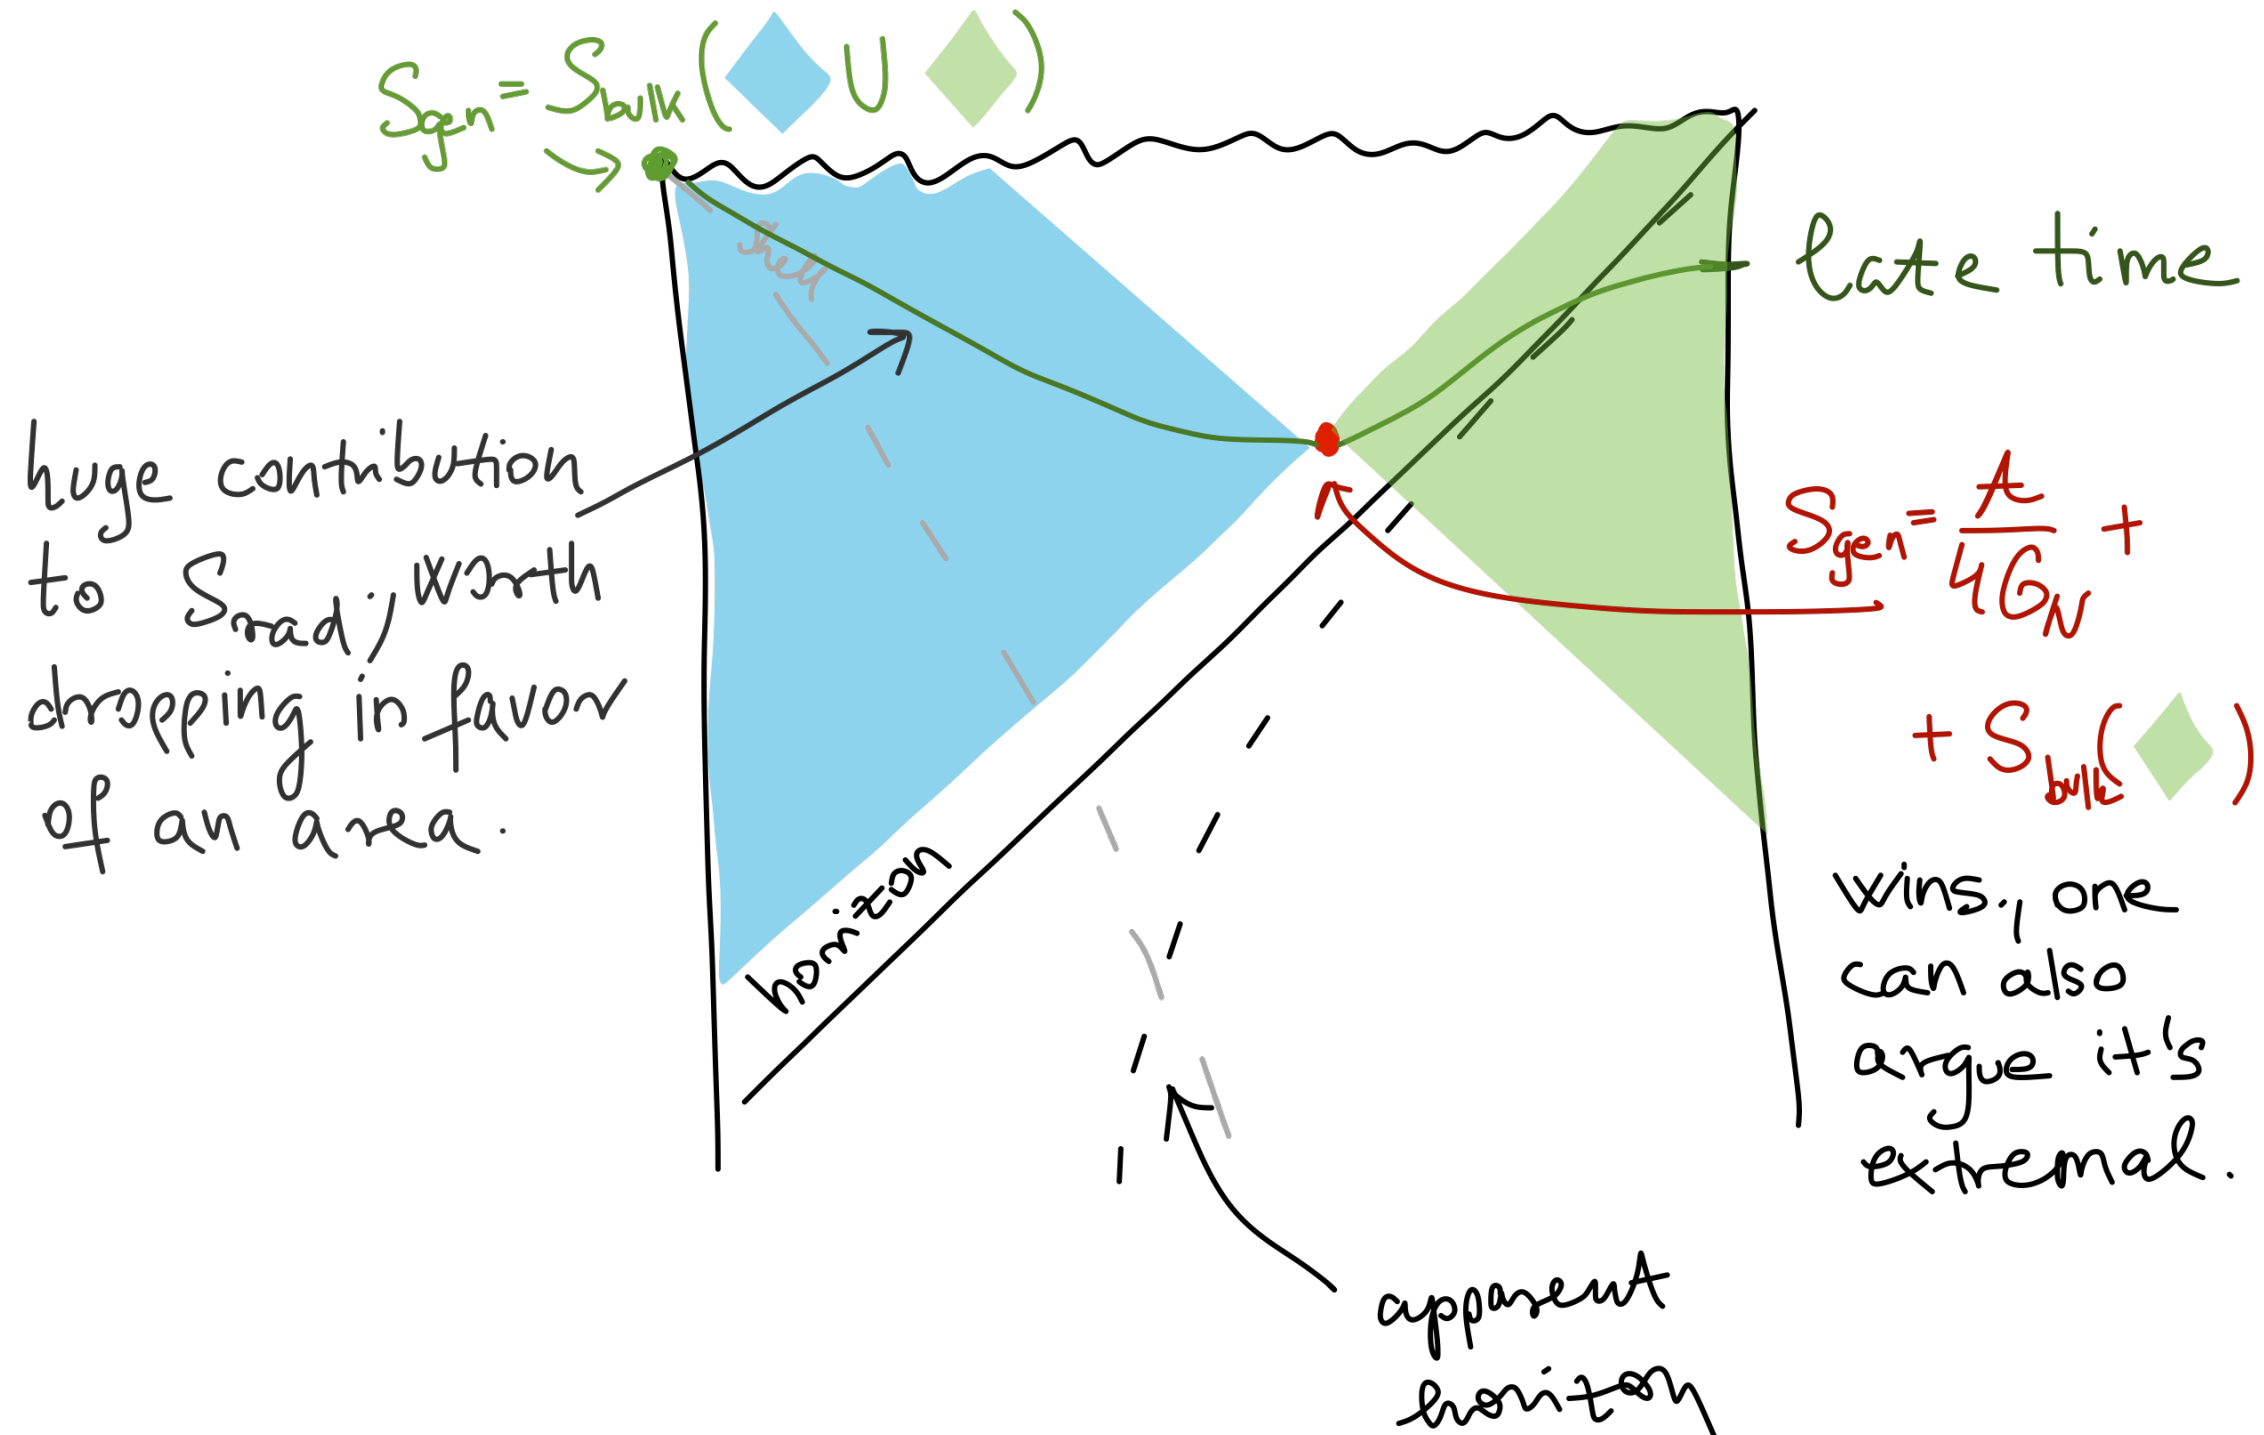 Sgen = Sbulk ( ∪ )
shell
late time
huge contribution
to Srad; worth
dropping in favor
of an area.
Sgen = A/4G_N +
+ Sbulk( )
wins., one
can also
argue it's
extremal.
horizon
apparent
horizon